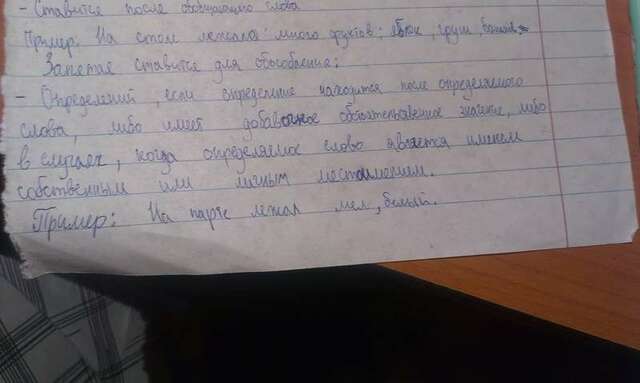 - Ставится после обобщающего слова
Пример: На столе лежало много фруктов: яблок, груш, бананов
Запятая ставится для обособления:
- Определений, если определение находится после определяемого
слова, либо имеет добавочное обстоятельственное значение, либо
в случаях, когда определяемое слово является именем
собственным или личным местоимением.
Пример: На парте лежал мел, белый.